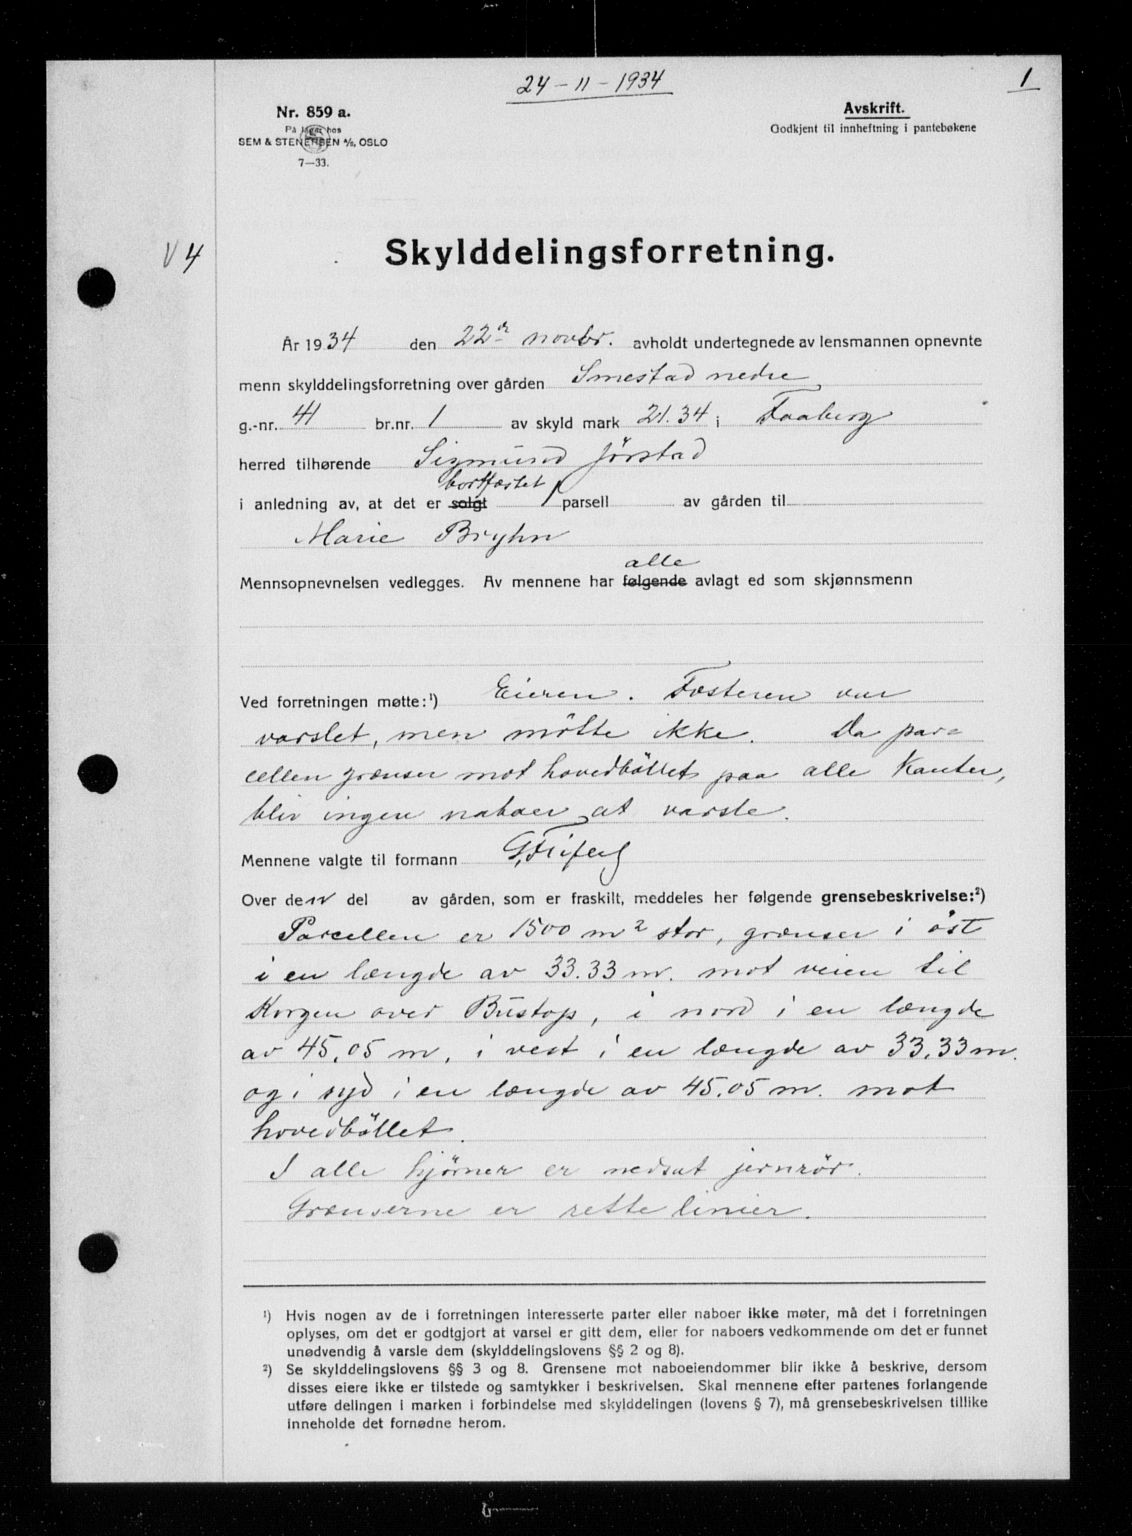 24-11-1934
1
Nr. 859 a.
På lager hos
SEM & STENERSEN A/S, OSLO
7—33.
Avskrift.
Godkjent til innheftning i pantebøkene
V 4
Skylddelingsforretning.
År 1934 den 22de novbr. avholdt undertegnede av lensmannen opnevnte
menn skylddelingsforretning over gården Smestad nedre
g.-nr. 41 br.nr. 1 av skyld mark 21.34 i Faaberg
herred tilhørende Sigmund Jörstad
bortfæstet
i anledning av, at det er solgt 1 parsell av gården til
Marie Bryhn
alle
Mennsopnevnelsen vedlegges. Av mennene har følgende avlagt ed som skjønnsmenn
Ved forretningen møtte:¹) Eieren. Fæsteren var
varslet, men mötte ikke. Da par=
cellen grænser mot hovedbölet paa alle kanter,
blir ingen naboer at varsle.
Mennene valgte til formann G.
Over den del av gården, som er fraskilt, meddeles her følgende grensebeskrivelse:²)
Parcellen er 1500 m² stor, grænser i öst
i en længde av 33.33 m. mot veien til
Korgen over Bustop, i nord i en længde
av 45,05 m, i vest i en længde av 33,33 m.
og i syd i en længde av 45.05 m. mot
hovedböllet.
I alle hjörner er nedsat jernrör.
Grænserne er rette linier.
¹) Hvis nogen av de i forretningen interesserte parter eller naboer ikke møter, må det i forretningen
oplyses, om det er godtgjort at varsel er gitt dem, eller for naboers vedkommende om det er funnet
unødvendig å varsle dem (skylddelingslovens §§ 2 og 8).
²) Se skylddelingslovens §§ 3 og 8. Grensene mot naboeiendommer blir ikke å beskrive, dersom
disses eiere ikke er tilstede og samtykker i beskrivelsen. Skal mennene efter partenes forlangende
utføre delingen i marken i forbindelse med skylddelingen (lovens § 7), må grensebeskrivelsen tillike
inneholde det fornødne herom.